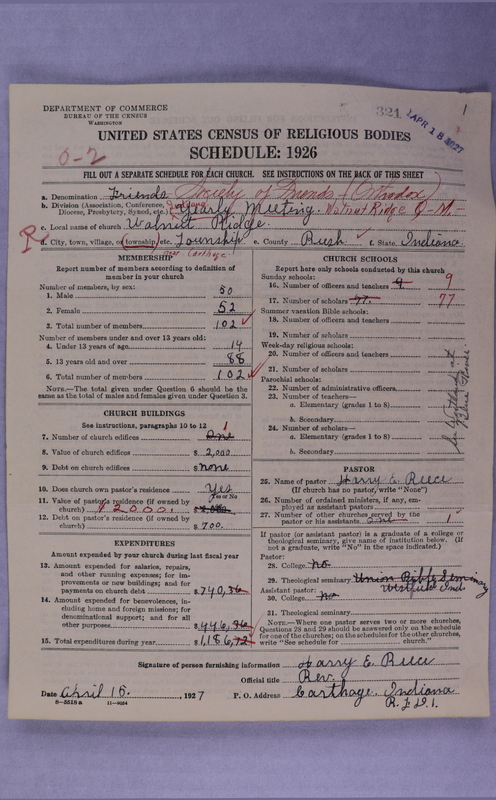 DEPARTMENT OF COMMERCE
BUREAU OF THE CENSUS
WASHINGTON
321
APR 18 1927
1
UNITED STATES CENSUS OF RELIGIOUS BODIES
SCHEDULE: 1926
0-2
FILL OUT A SEPARATE SCHEDULE FOR EACH CHURCH. SEE INSTRUCTIONS ON THE BACK OF THIS SHEET
a. Denomination Friends Society of Friends (Orthodox)
b. Division (Association, Conference, Diocese, Presbytery, Synod, etc.) Indiana Yearly Meeting. Walnut Ridge Q-M.
c. Local name of church Walnut Ridge.
d. City, town, village, or township, etc. Township e. County Rush f. State Indiana
near Carthage
R
MEMBERSHIP
Report number of members according to definition of member in your church
Number of members, by sex:
1. Male 50
2. Female 52
3. Total number of members 102
Number of members under and over 13 years old:
4. Under 13 years of age 14
5. 13 years old and over 88
6. Total number of members 102
NOTE.—The total given under Question 6 should be the same as the total of males and females given under Question 3.
CHURCH BUILDINGS
See instructions, paragraphs 10 to 12
7. Number of church edifices One 1
8. Value of church edifices $ 2,000
9. Debt on church edifices $ none
10. Does church own pastor's residence? Yes
Yes or No
11. Value of pastor's residence (if owned by church) $2000.
12. Debt on pastor's residence (if owned by church) $ 700.
EXPENDITURES
Amount expended by your church during last fiscal year
13. Amount expended for salaries, repairs, and other running expenses; for improvements or new buildings; and for payments on church debt $ 740,36
14. Amount expended for benevolences, including home and foreign missions; for denominational support; and for all other purposes $ 446,36
15. Total expenditures during year $ 1,186,72
CHURCH SCHOOLS
Report here only schools conducted by this church
Sunday schools:
16. Number of officers and teachers 9. 9
17. Number of scholars 77. 77
Summer vacation Bible schools:
18. Number of officers and teachers
19. Number of scholars
Week-day religious schools:
20. Number of officers and teachers
21. Number of scholars
Parochial schools:
22. Number of administrative officers
23. Number of teachers—
a. Elementary (grades 1 to 8)
b. Secondary
24. Number of scholars—
a. Elementary (grades 1 to 8)
b. Secondary
PASTOR
25. Name of pastor Harry E. Reece
(If church has no pastor, write "None")
26. Number of ordained ministers, if any, employed as assistant pastors
27. Number of other churches served by the pastor or his assistants one 1
If pastor (or assistant pastor) is a graduate of a college or theological seminary, give name of institution below. (If not a graduate, write "No" in the space indicated.)
Pastor:
28. College no
29. Theological seminary Union Bible Seminary
Westfield Ind.
Assistant pastor:
30. College no
31. Theological seminary
NOTE.—Where one pastor serves two or more churches, Questions 28 and 29 should be answered only on the schedule for one of the churches; on the schedules for the other churches, write "See schedule for church."
Signature of person furnishing information Harry E. Reece
Official title Rev.
Date April 16, 1927 P. O. Address Carthage, Indiana
R.F.D.1.
8-5518 a 11-9054